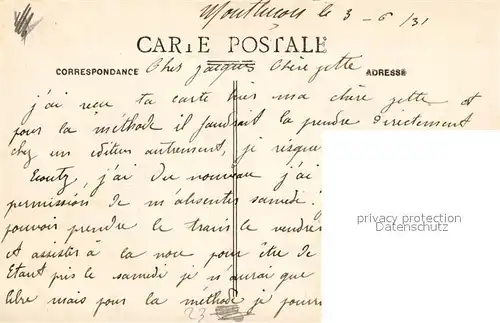 Montluçon le 3-6/31
CARTE POSTALE
CORRESPONDANCE
ADRESSE
Cher Jacques Chère Zette
j'ai reçu ta carte ma chère Zette et
pour la méthode il faudrait la prendre directement
chez un éditeur autrement, je risque
Ecoutez, j'ai du nouveau j'ai
permission de m'absenter samedi
pouvoir prendre le train le vendre
et assister à la noce pour être de
Etant pris le samedi je n'aurai que
libre mais pour la méthode je pourr
23
privacy protection
www.oldthing.com